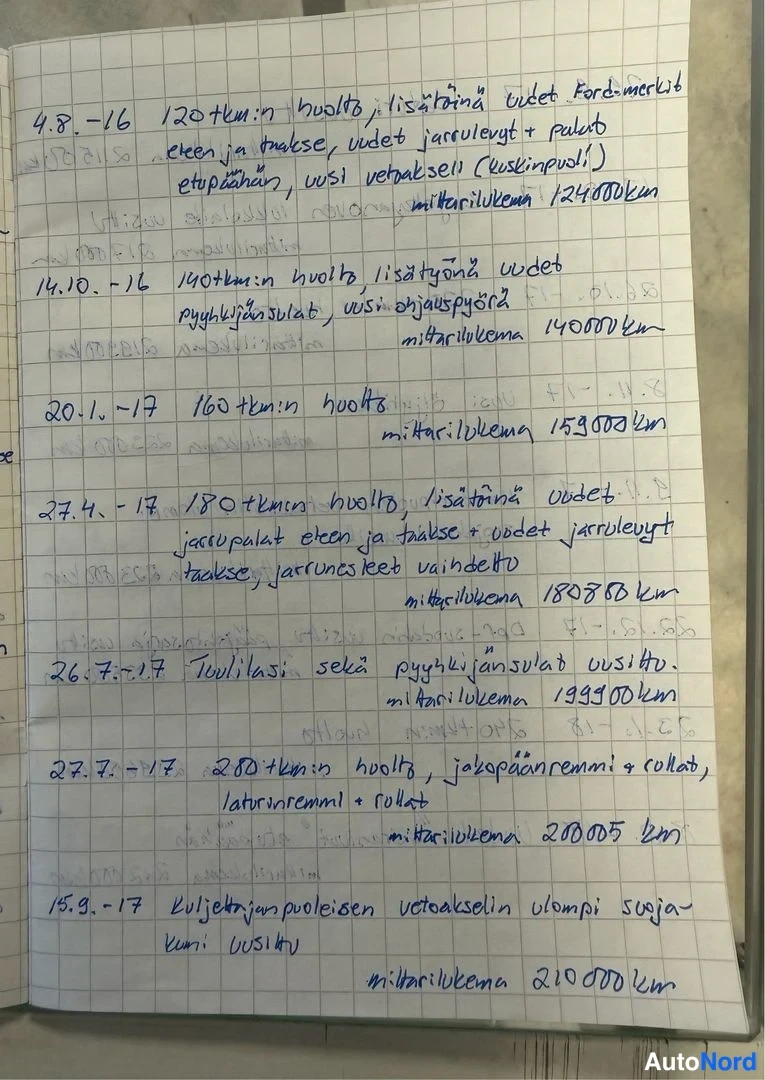 4.8.-16 120 tkm:n huolto, lisätöinä uudet Ford-merkit
eteen ja taakse, uudet jarrulevyt + palat
etupäähän, uusi vetoakseli (kuskinpuoli)
mittarilukema 124000km
14.10.-16 140tkm:n huolto, lisätyönä uudet
pyyhkijänsulat, uusi ohjauspyörä
mittarilukema 140000km
20.1.-17 160 tkm:n huolto
mittarilukema 159000km
27.4.-17 180 tkm:n huolto, lisätöinä uudet
jarrupalat eteen ja taakse + uudet jarrulevyt
taakse, jarrunesteet vaihdettu
mittarilukema 180800 km
26.7.-17 Tuulilasi sekä pyyhkijänsulat uusittu.
mittarilukema 199900km
27.7.-17 200 tkm:n huolto, jakopäänremmi + rullat,
laturinremmi + rullat
mittarilukema 200005 km
15.9.-17 Kuljettajanpuoleisen vetoakselin ulompi suoja-
kumi uusittu
mittarilukema 210000km
AutoNord